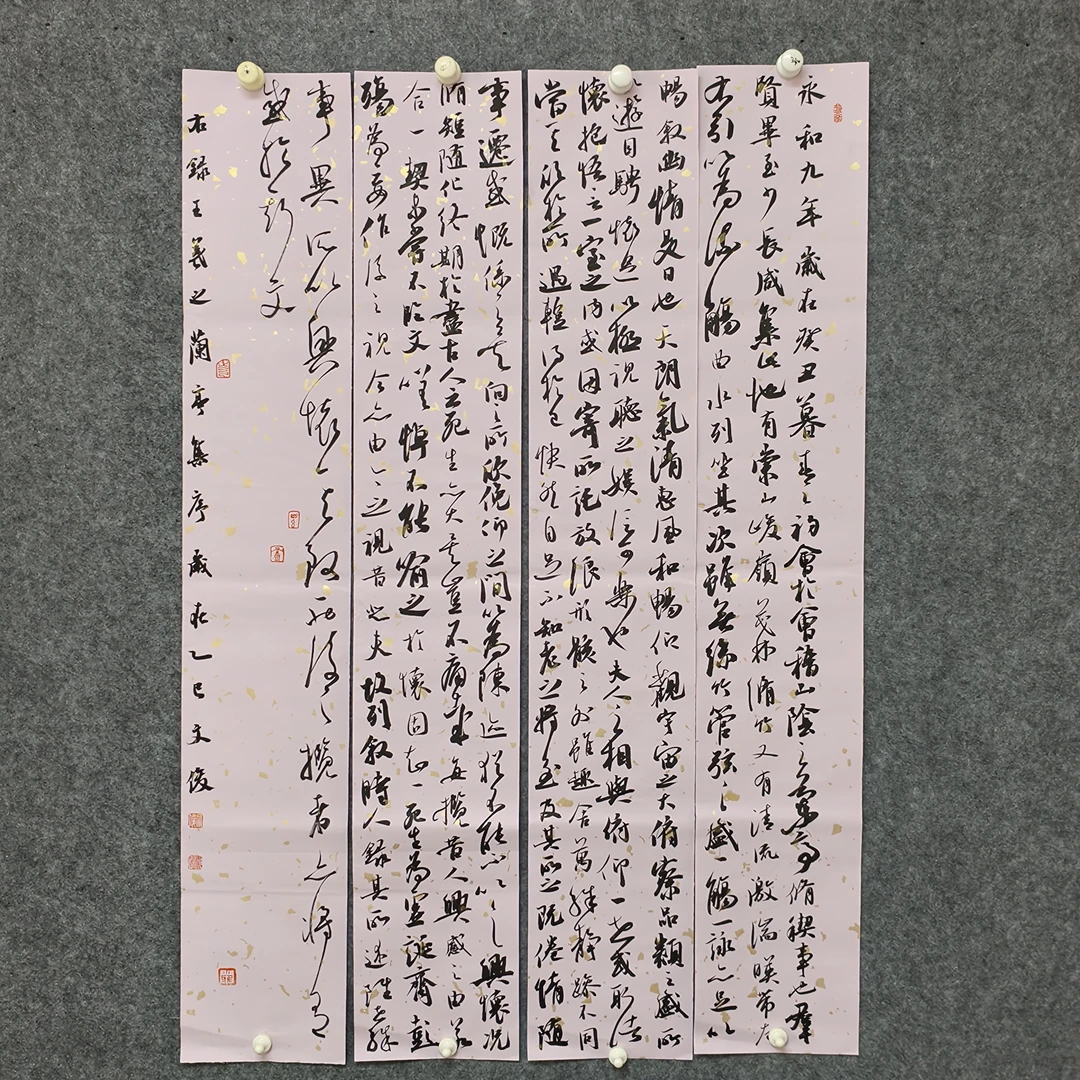 永和九年歲在癸丑暮春之初會於會稽山陰之蘭亭脩稧事也羣
賢畢至少長咸集此地有崇山峻嶺茂林脩竹又有清流激湍暎帶左
右引以為流觴曲水列坐其次雖無絲竹管弦之盛一觴一詠亦足以
暢敘幽情是日也天朗氣清惠風和暢仰觀宇宙之大俯察品類之盛所
以遊目騁懷足以極視聽之娛信可樂也夫人之相與俯仰一世或取諸
懷抱悟言一室之內或因寄所託放浪形骸之外雖趣舍萬殊靜躁不同
當其欣於所遇蹔得於己快然自足不知老之將至及其所之既倦情隨
事遷感慨係之矣向之所欣俛仰之間以為陳迹猶不能不以之興懷況
脩短隨化終期於盡古人云死生亦大矣豈不痛哉每攬昔人興感之由若
合一契未嘗不臨文嗟悼不能喻之於懷固知一死生為虛誕齊彭
殤為妄作後之視今亦由今之視昔悲夫故列敘時人錄其所述雖世殊
事異所以興懷其致一也後之攬者亦將有
感於斯文
右錄王羲之蘭亭集序歲在乙巳文俊